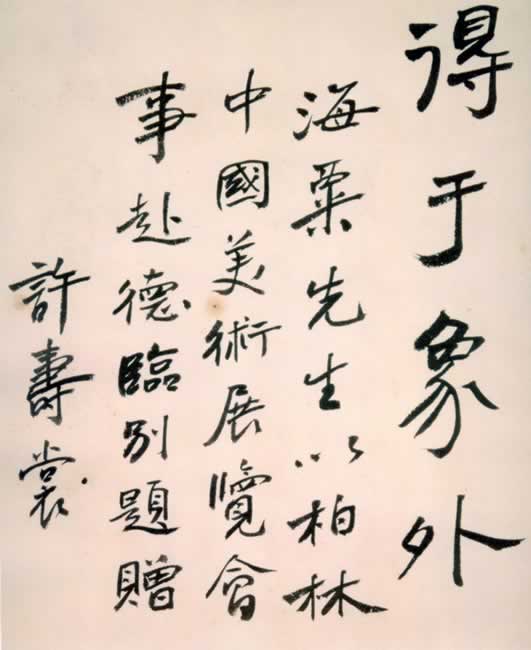 得于象外
海粟先生以柏林
中國美術展覽會
事赴德臨别題贈
許壽裳